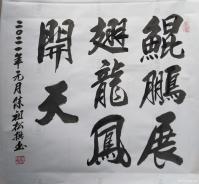 鯤鵬展
翅龍鳳
開天
二〇二一年元月徐祖松撰書